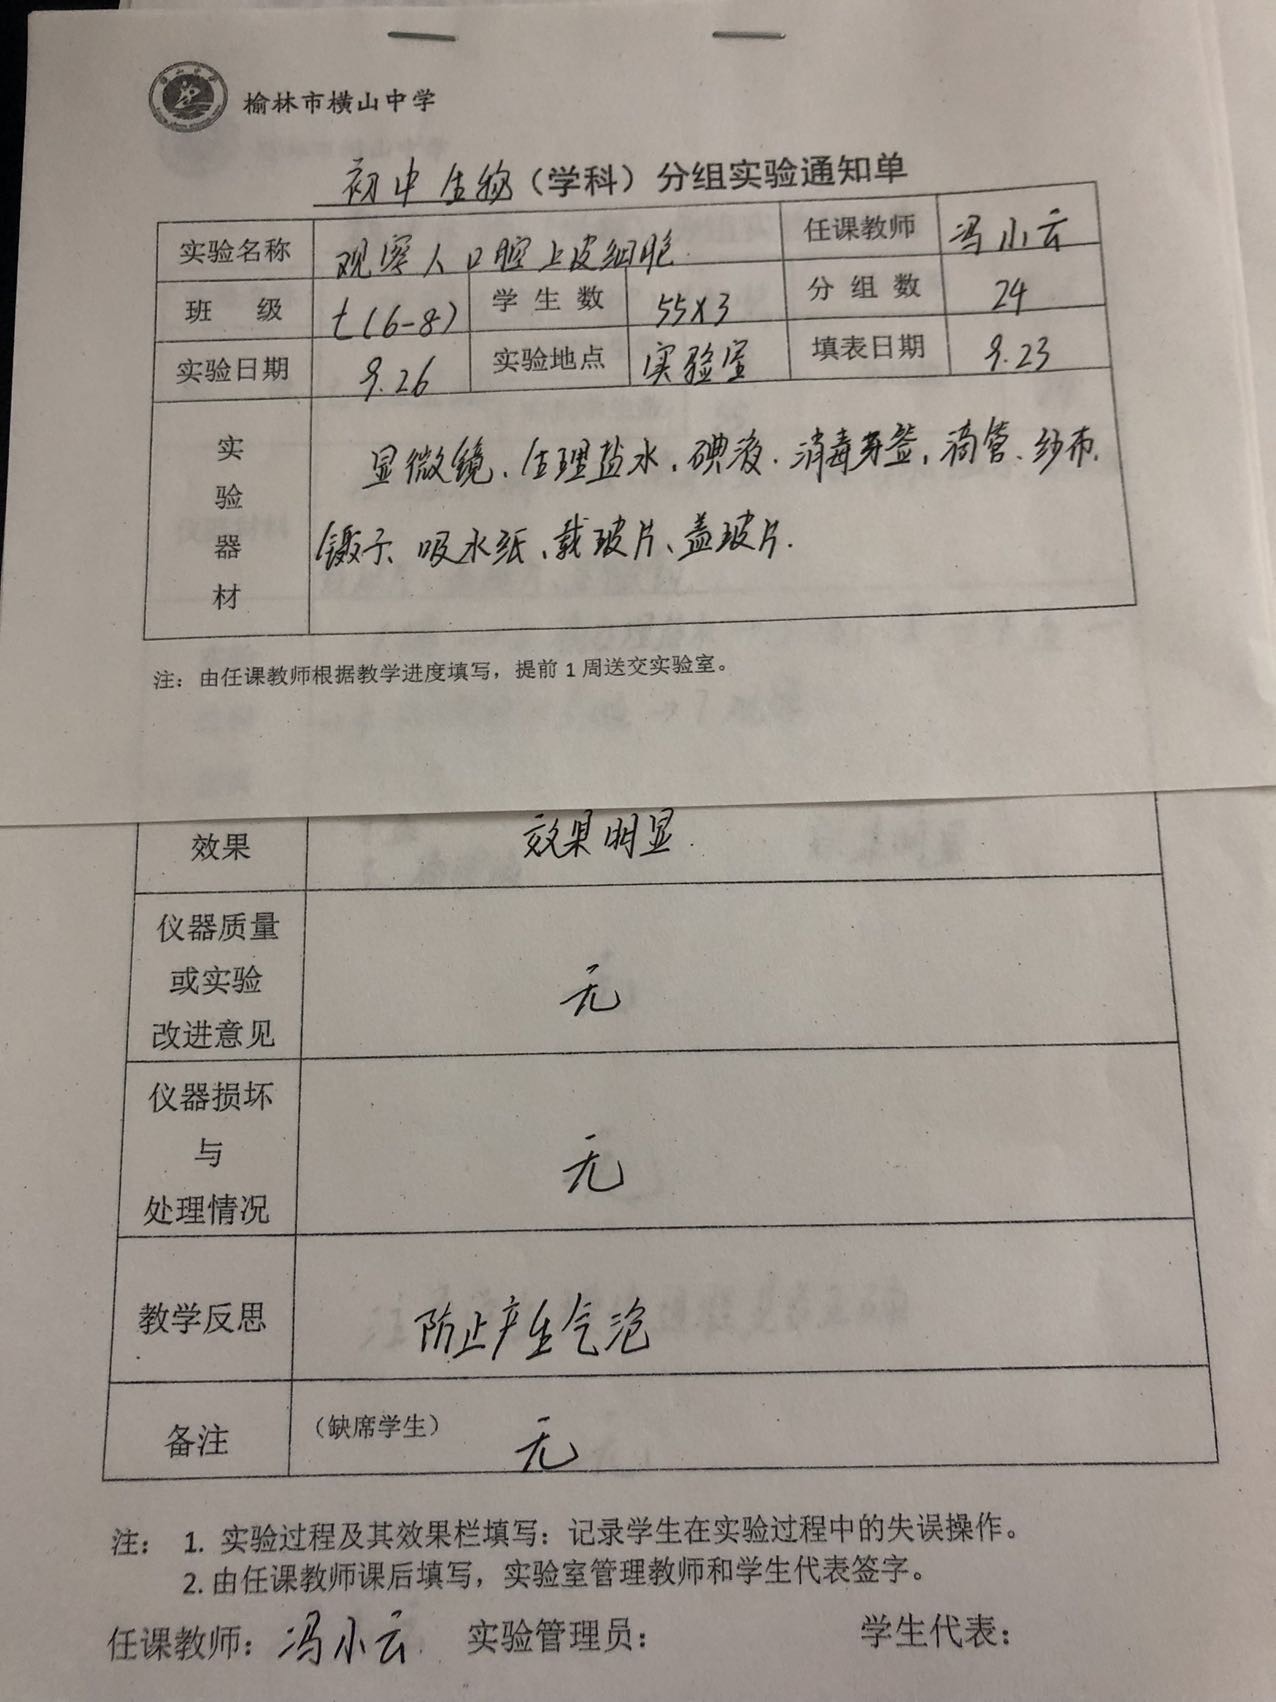 榆林市横山中学
初中生物（学科）分组实验通知单
实验名称 观察人口腔上皮细胞. 任课教师 冯小云
班 级 七(6-8) 学 生 数 55×3 分 组 数 24
实验日期 9.26 实验地点 实验室 填表日期 9.23
实验器材
显微镜、生理盐水、碘液、消毒牙签、滴管、纱布、
镊子、吸水纸、载玻片、盖玻片.
注：由任课教师根据教学进度填写，提前1周送交实验室。
效果 效果明显.
仪器质量
或实验 无
改进意见
仪器损坏
与 无
处理情况
教学反思 防止产生气泡
备注 （缺席学生） 无
注： 1. 实验过程及其效果栏填写：记录学生在实验过程中的失误操作。
2.由任课教师课后填写，实验室管理教师和学生代表签字。
任课教师：冯小云 实验管理员： 学生代表：